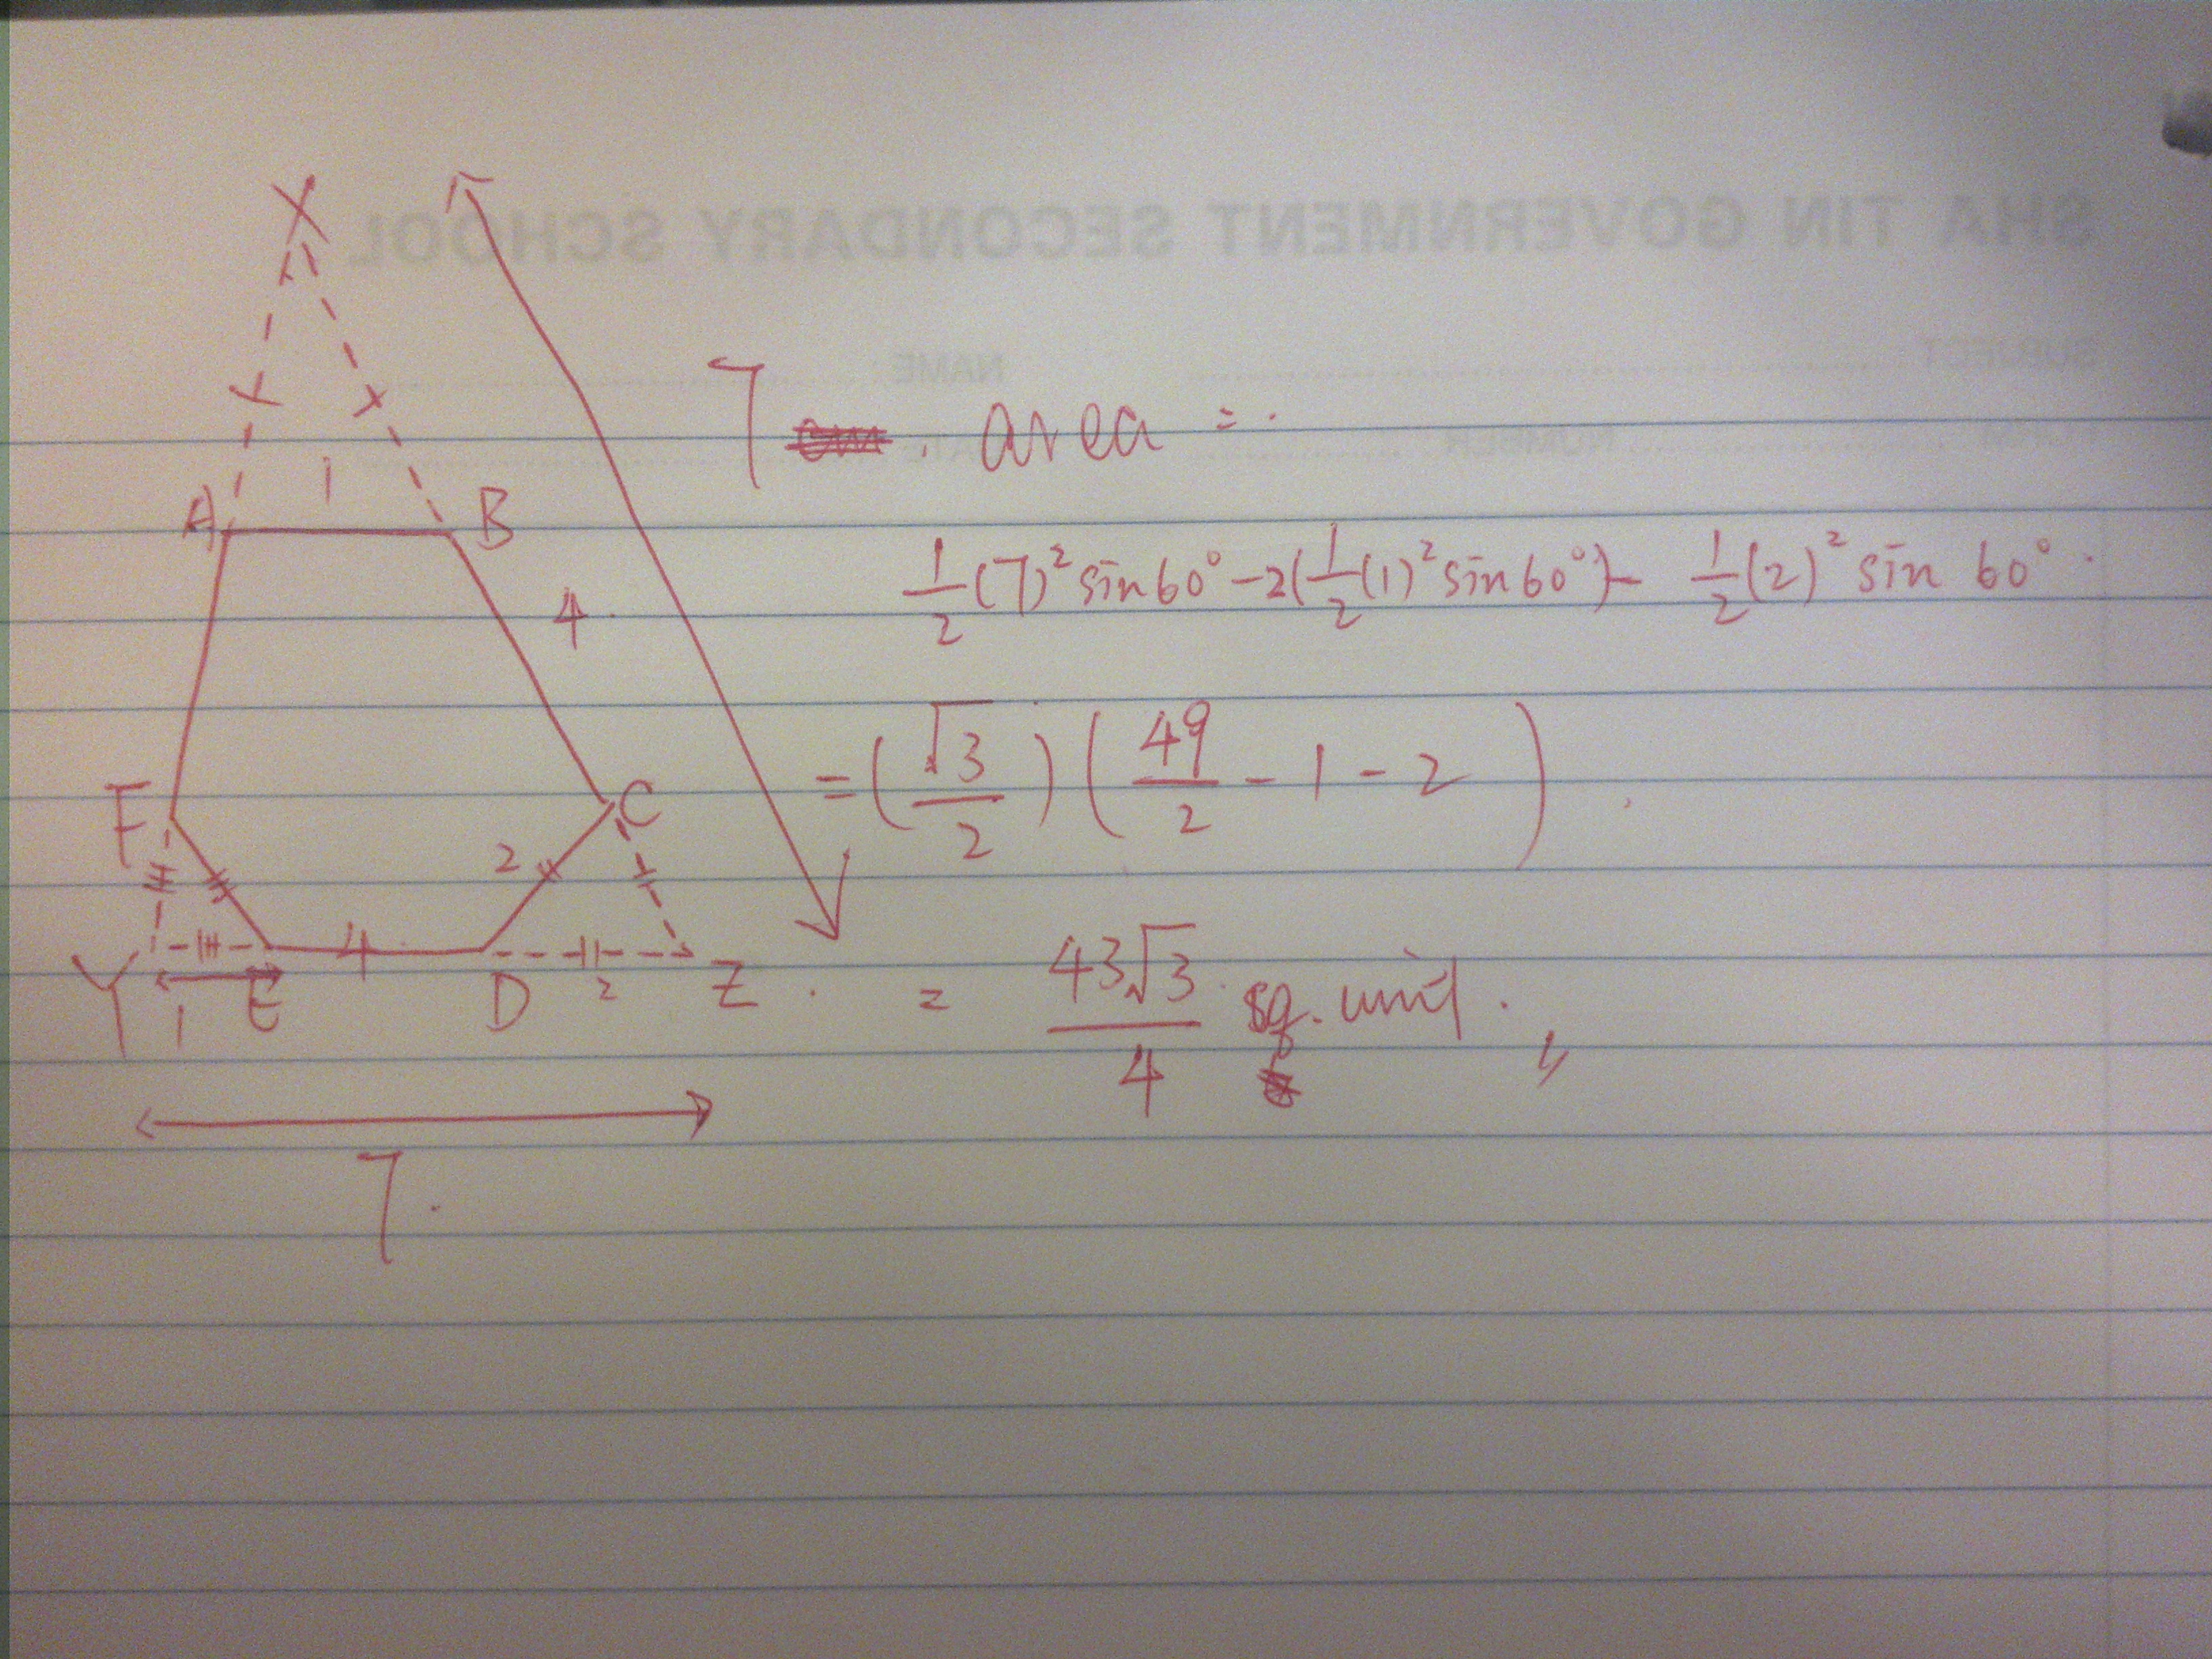 SHA TIN GOVERNMENT SECONDARY SCHOOL
SUBJECT
NAME
NUMBER
X
7 area =
A 1 B
4
1/2 (7)² sin 60° - 2(1/2 (1)² sin 60°) - 1/2 (2)² sin 60°.
= (√3/2) (49/2 - 1 - 2)
F C
2
4
Y E D 2 Z
1
= 43√3/4 sq. unit.
7.